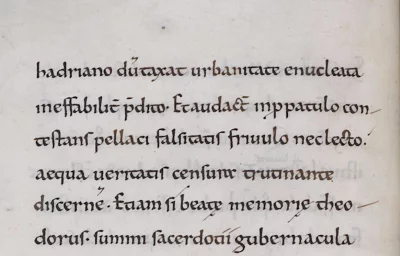 hadriano dũtaxat urbanitate enucleata
ineffabilit̃ p̃dito· Et audact̃ inp̱patulo con-
testans pellaci falsitatis friuulo neclecto.
aequa ueritatis censure trutinante
discerne̅· Etiam si beatę memorię theo-
dorus· summi sacerdotii gubernacula